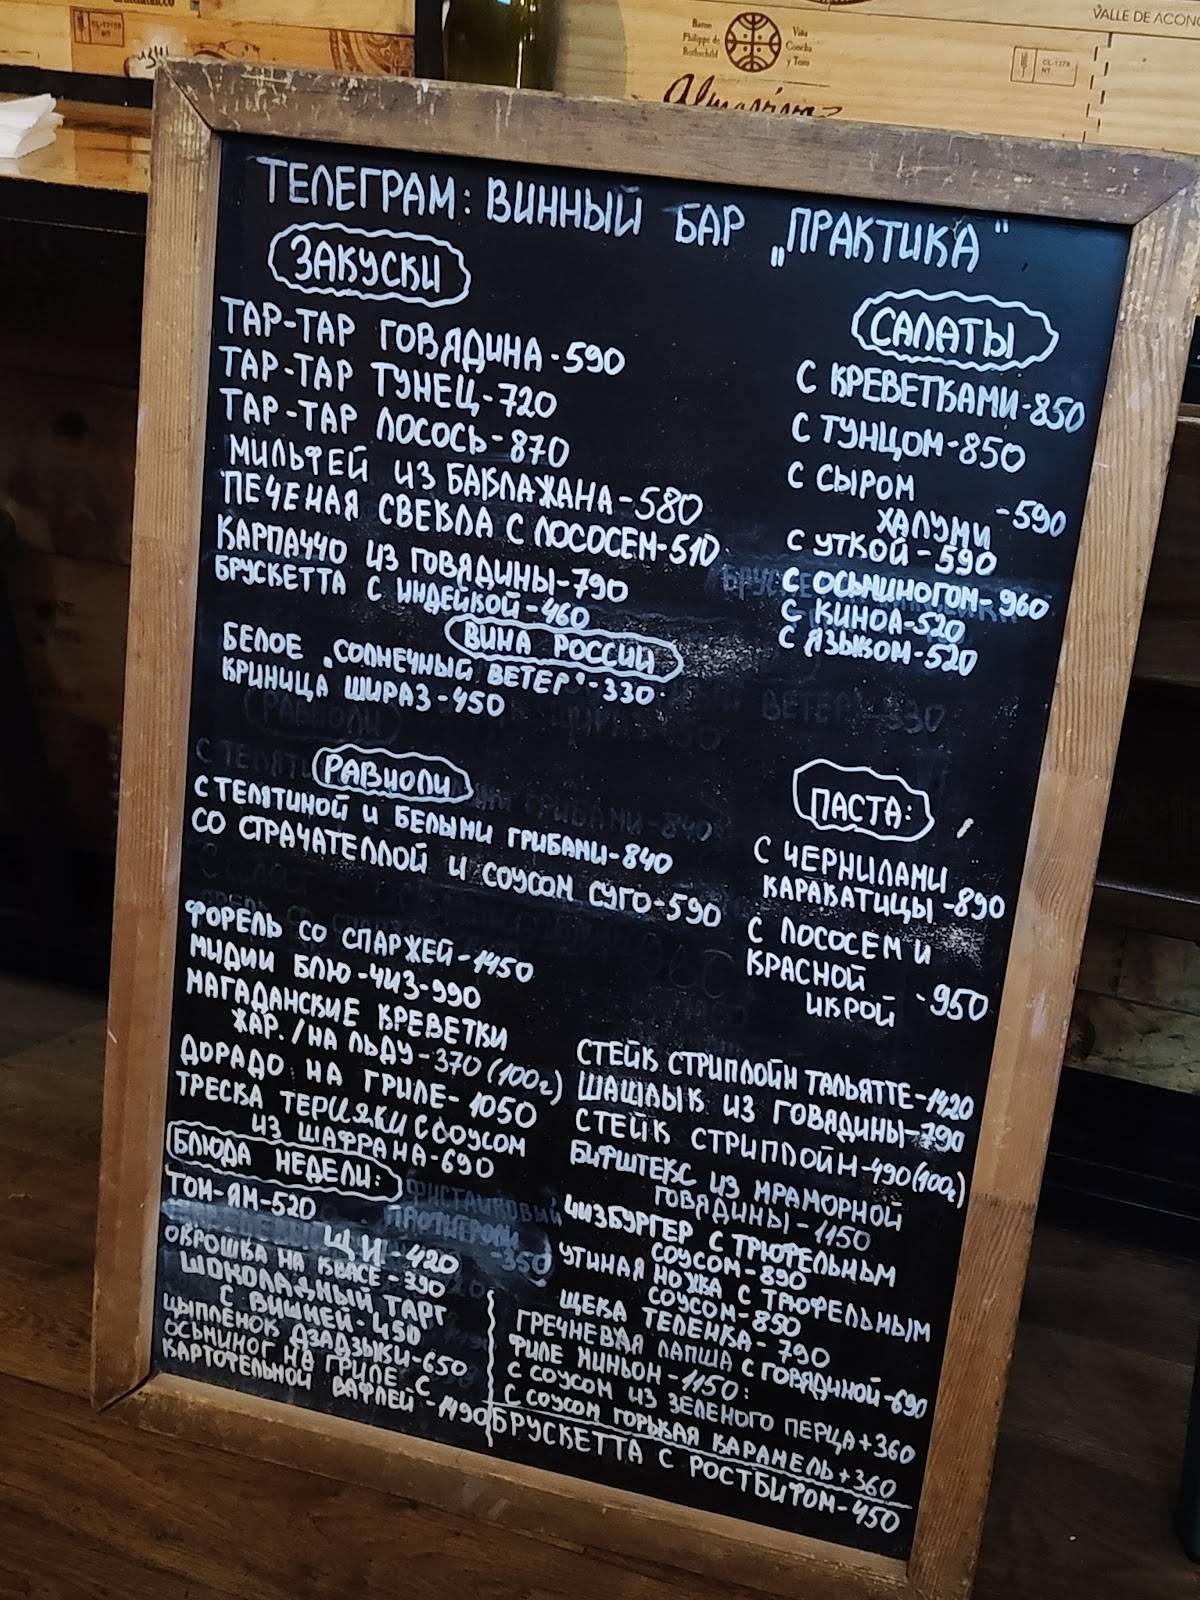 VALLE DE ACONC
Baron
Philippe de
Rothschild
Viña
Concha
y Toro
CL-1278
NT
Almaviva
ТЕЛЕГРАМ: ВИННЫЙ БАР „ПРАКТИКА"
ЗАКУСКИ
ТАР-ТАР ГОВЯДИНА-590
ТАР-ТАР ТУНЕЦ-720
ТАР-ТАР ЛОСОСЬ-870
МИЛЬФЕЙ ИЗ БАКЛАЖАНА-580
ПЕЧЕНАЯ СВЕКЛА С ЛОСОСЕМ-510
КАРПАЧЧО ИЗ ГОВЯДИНЫ-790
БРУСКЕТТА С ИНДЕЙКОЙ-460
ВИНА РОССИИ
БЕЛОЕ „СОЛНЕЧНЫЙ ВЕТЕР"-330
КРИНИЦА ШИРАЗ-450
САЛАТЫ
С КРЕВЕТКАМИ-850
С ТУНЦОМ-850
С СЫРОМ
ХАЛУМИ -590
С УТКОЙ-590
С ОСЬМИНОГОМ-960
С КИНОА-520
С ЯЗЫКОМ-520
РАВИОЛИ
С ТЕЛЯТИНОЙ И БЕЛЫМИ ГРИБАМИ-840
СО СТРАЧАТЕЛЛОЙ И СОУСОМ СУГО-590
ПАСТА:
С ЧЕРНИЛАМИ
КАРАКАТИЦЫ -890
С ЛОСОСЕМ И
КРАСНОЙ
ИКРОЙ -950
ФОРЕЛЬ СО СПАРЖЕЙ-1450
МИДИИ БЛЮ-ЧИЗ-990
МАГАДАНСКИЕ КРЕВЕТКИ
ЖАР./НА ЛЬДУ-370(100г)
ДОРАДО НА ГРИЛЕ-1050
ТРЕСКА ТЕРИЯКИ С СОУСОМ
ИЗ ШАФРАНА-690
БЛЮДА НЕДЕЛИ:
ТОМ-ЯМ-520
ЩИ-420
ОКРОШКА НА КВАСЕ-390
ШОКОЛАДНЫЙ ТАРТ
С ВИШНЕЙ-450
ЦЫПЛЁНОК ДЗАДЗЫКИ-650
ОСЬМИНОГ НА ГРИЛЕ С
КАРТОФЕЛЬНОЙ ВАФЛЕЙ-1490
ФИСТАШКОВЫЙ
-350
СТЕЙК СТРИПЛОЙН ТАЛЬЯТТЕ-1420
ШАШЛЫК ИЗ ГОВЯДИНЫ-790
СТЕЙК СТРИПЛОЙН-490(100г)
БИФШТЕКС ИЗ МРАМОРНОЙ
ГОВЯДИНЫ-1150
ЧИЗБУРГЕР С ТРЮФЕЛЬНЫМ
СОУСОМ-890
УТИНАЯ НОЖКА С ТРЮФЕЛЬНЫМ
СОУСОМ-850
ЩЕКА ТЕЛЕНКА-790
ГРЕЧНЕВАЯ ЛАПША С ГОВЯДИНОЙ-690
ФИЛЕ МИНЬОН-1150:
С СОУСОМ ИЗ ЗЕЛЕНОГО ПЕРЦА+360
С СОУСОМ ГОРЬКАЯ КАРАМЕЛЬ+360
БРУСКЕТТА С РОСТБИФОМ-450